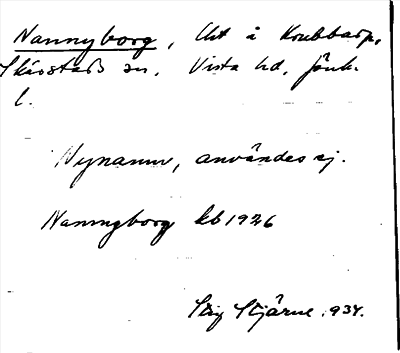 Nannyborg, lht å Krubbarp,
Skärstads sn, Vista hd, Jönk.
l.
Nynamn, användes ej.
Nannyborg kb 1926
Stig Stjärne 1934.